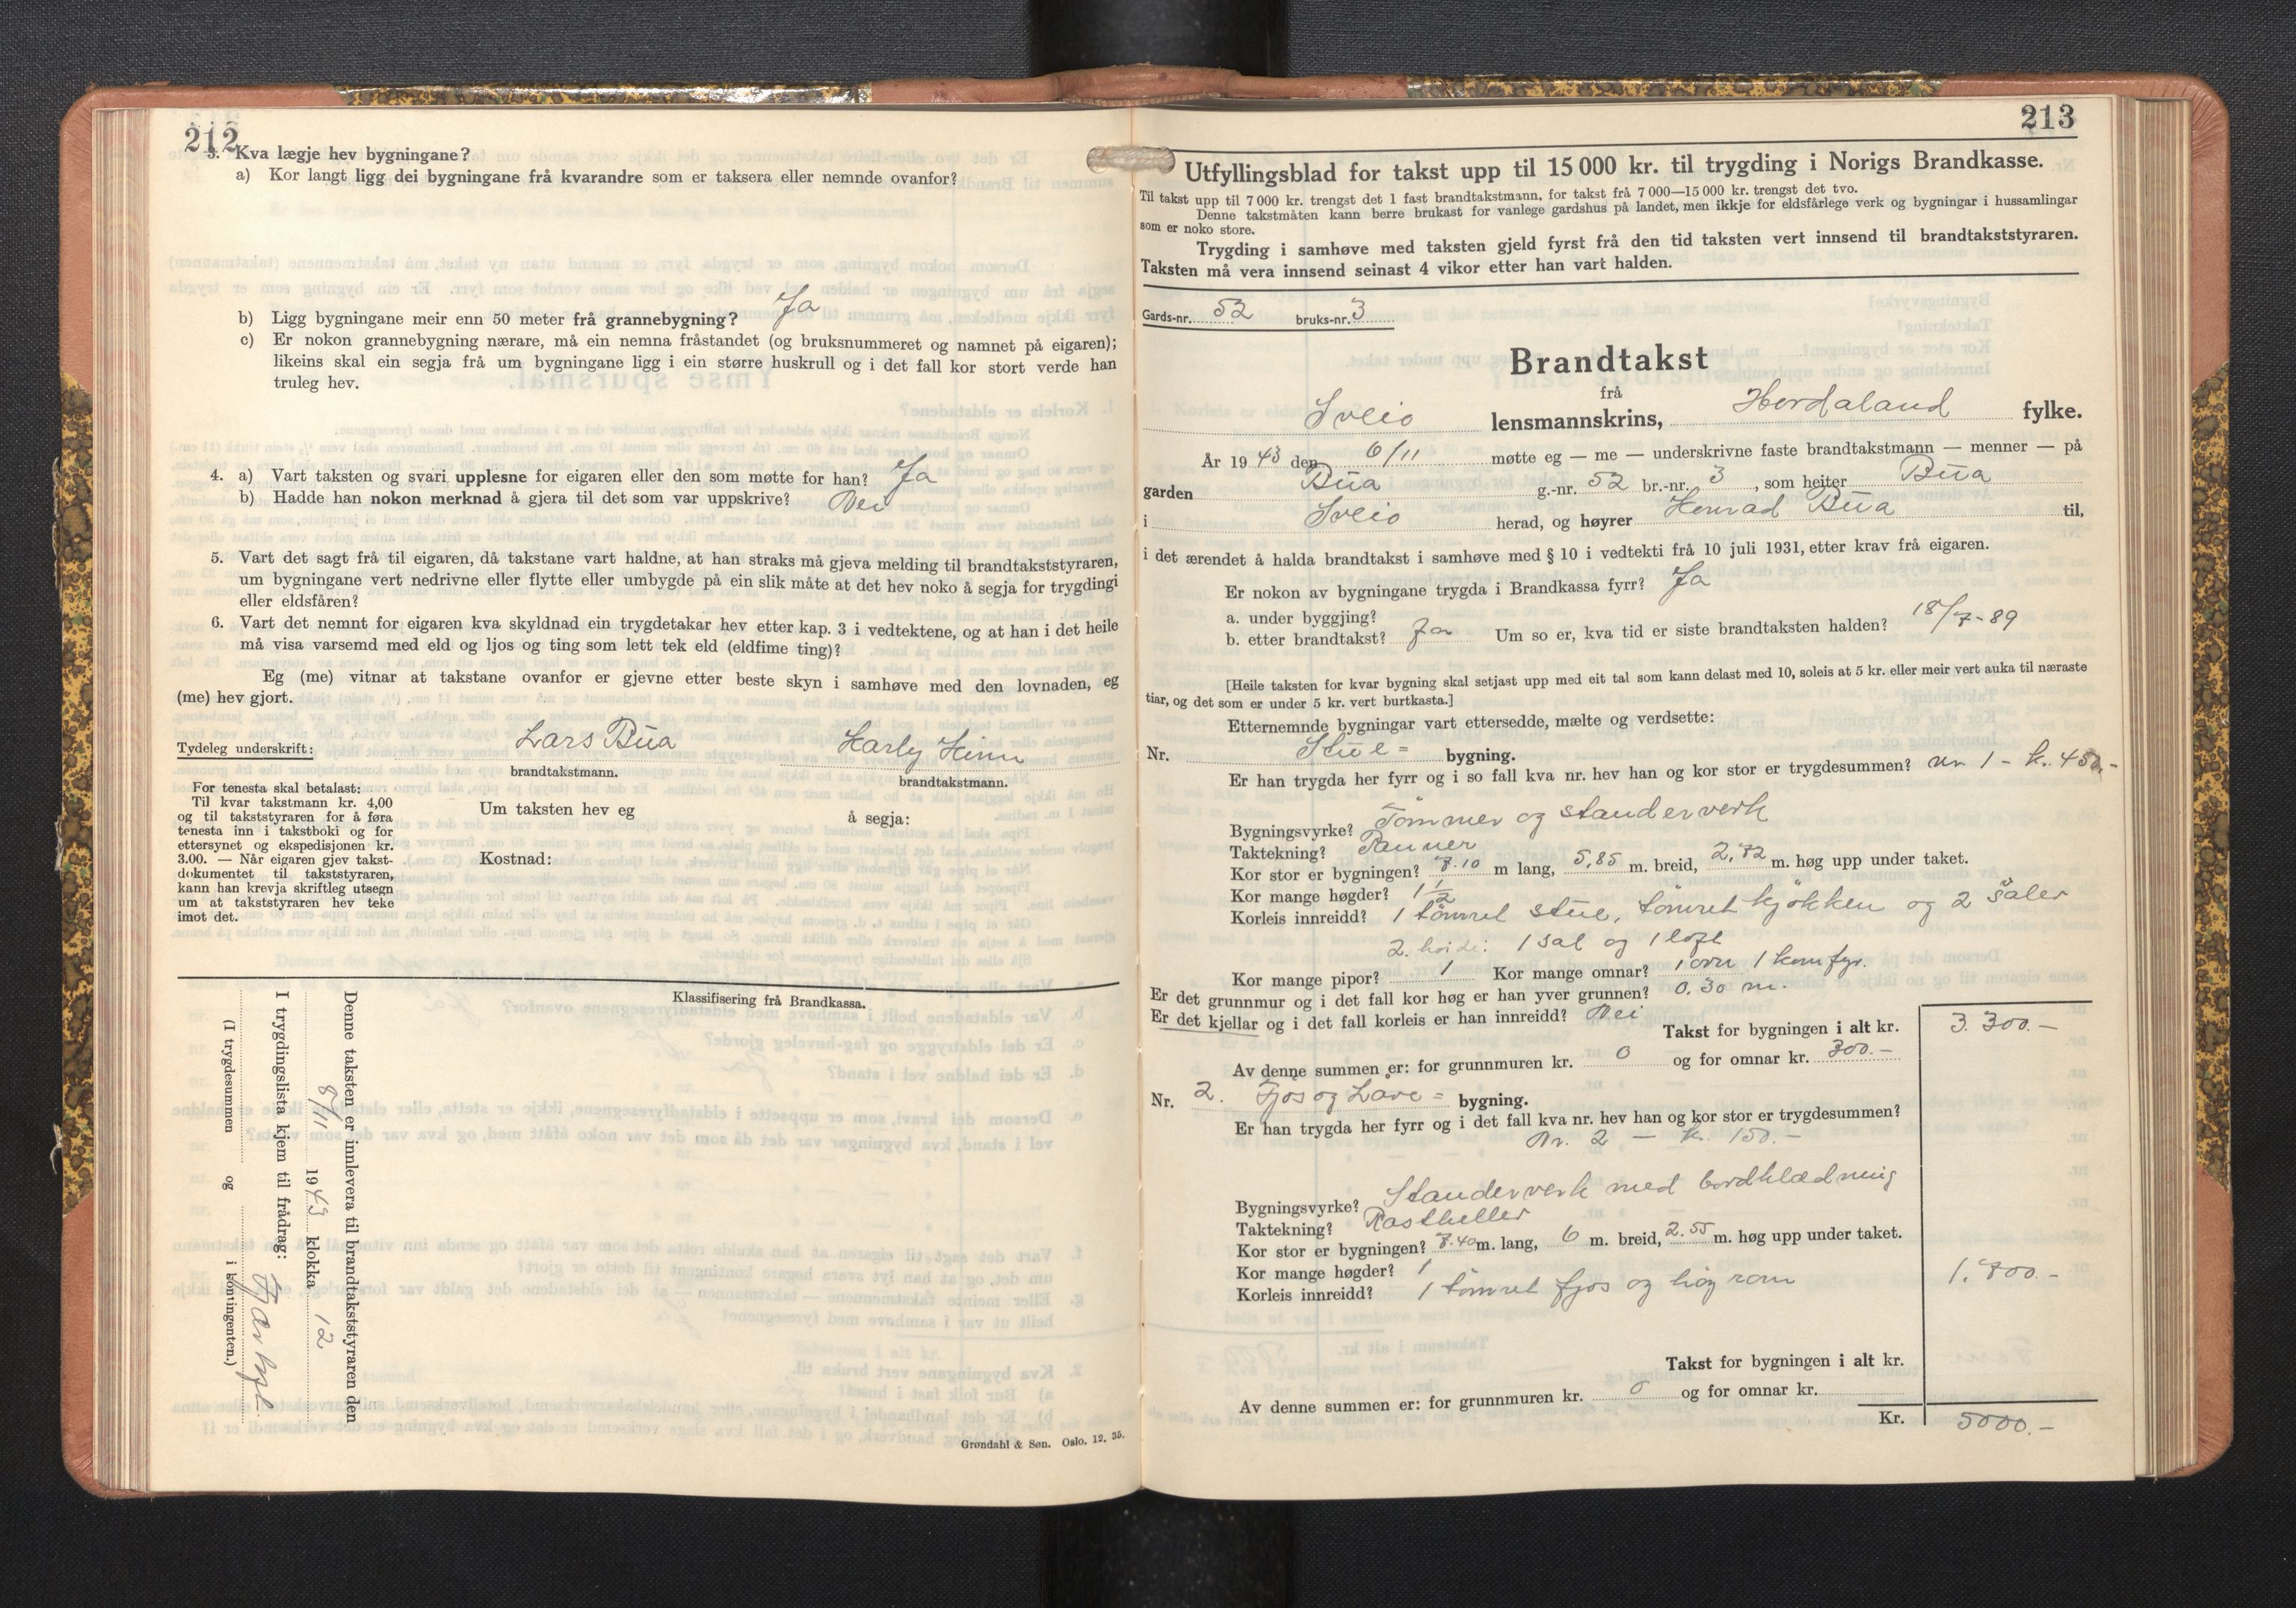 212
3. Kva lægje hev bygningane?
a) Kor langt ligg dei bygningane frå kvarandre som er taksera eller nemnde ovanfor?
b) Ligg bygningane meir enn 50 meter frå grannebygning? Ja
c) Er nokon grannebygning nærare, må ein nemna fråstandet (og bruksnummeret og namnet på eigaren);
likeins skal ein segja frå um bygningane ligg i ein større huskrull og i det fall kor stort verde han
truleg hev.
4. a) Vart taksten og svari upplesne for eigaren eller den som møtte for han? Ja
b) Hadde han nokon merknad å gjera til det som var uppskrive? Nei
5. Vart det sagt frå til eigaren, då takstane vart haldne, at han straks må gjeva melding til brandtakststyraren,
um bygningane vert nedrivne eller flytte eller umbygde på ein slik måte at det hev noko å segja for trygdingi
eller eldsfåren?
6. Vart det nemnt for eigaren kva skyldnad ein trygdetakar hev etter kap. 3 i vedtektene, og at han i det heile
må visa varsemd med eld og ljos og ting som lett tek eld (eldfime ting)?
Eg (me) vitnar at takstane ovanfor er gjevne etter beste skyn i samhøve med den lovnaden, eg
(me) hev gjort.
Tydeleg underskrift: Lars Bua Harly
brandtakstmann. brandtakstmann.
For tenesta skal betalast:
Til kvar takstmann kr. 4,00
og til takststyraren for å føra
tenesta inn i takstboki og for
ettersynet og ekspedisjonen kr.
3.00. — Når eigaren gjev takst-
dokumentet til takststyraren,
kann han krevja skriftleg utsegn
um at takststyraren hev teke
imot det.
Um taksten hev eg å segja:
Kostnad:
Klassifisering frå Brandkassa.
Denne taksten er innlevera til brandtakststyraren den
8/11 1943 klokka 12
I trygdingslista kjem til frådrag:
(I trygdesummen og i kontingenten.)
Grøndahl & Søn. Oslo. 12. 35.
213
Utfyllingsblad for takst upp til 15 000 kr. til trygding i Norigs Brandkasse.
Til takst upp til 7 000 kr. trengst det 1 fast brandtakstmann, for takst frå 7 000—15 000 kr. trengst det tvo.
Denne takstmåten kann berre brukast for vanlege gardshus på landet, men ikkje for eldsfårlege verk og bygningar i hussamlingar
som er noko store.
Trygding i samhøve med taksten gjeld fyrst frå den tid taksten vert innsend til brandtakststyraren.
Taksten må vera innsend seinast 4 vikor etter han vart halden.
Gards-nr. 52 bruks-nr. 3
Brandtakst
frå
Sveio lensmannskrins, Hordaland fylke.
År 1943 den 6/11 møtte eg — me — underskrivne faste brandtakstmann — menner — på
garden Bua g.-nr. 52 br.-nr. 3, som heiter Bua
i Sveio herad, og høyrer Bua til,
i det ærendet å halda brandtakst i samhøve med § 10 i vedtekti frå 10 juli 1931, etter krav frå eigaren.
Er nokon av bygningane trygda i Brandkassa fyrr? Ja
a. under byggjing?
b. etter brandtakst? Ja Um so er, kva tid er siste brandtaksten halden? 18/7-89
[Heile taksten for kvar bygning skal setjast upp med eit tal som kann delast med 10, soleis at 5 kr. eller meir vert auka til næraste
tiar, og det som er under 5 kr. vert burtkasta.]
Etternemnde bygningar vart ettersedde, mælte og verdsette:
Nr. Stue= bygning.
Er han trygda her fyrr og i so fall kva nr. hev han og kor stor er trygdesummen? nr 1 - k. 450.-
Bygningsvyrke? Tømmer og standerverk
Taktekning? Panner
Kor stor er bygningen? 7.10 m lang, 5,85 m. breid, 2,72 m. høg upp under taket.
Kor mange høgder? 1 1/2
Korleis innreidd? 1 tømret stue, tømret kjøkken og 2 saler
2. høide: 1 sal og 1 loft
Kor mange pipor? 1 Kor mange omnar? 1 ovn 1 komfyr.
Er det grunnmur og i det fall kor høg er han yver grunnen? 0.30 m.
Er det kjellar og i det fall korleis er han innreidd? Nei
Takst for bygningen i alt kr. 3.300.—
Av denne summen er: for grunnmuren kr. 0 og for omnar kr. 300.—
Nr. 2. Fjos og Løe= bygning.
Er han trygda her fyrr og i det fall kva nr. hev han og kor stor er trygdesummen?
Nr. 2 — k. 150.—
Bygningsvyrke? Standerverk med bordklædning
Taktekning? Rastheller
Kor stor er bygningen? 7.40 m. lang, 6 m. breid, 2.55 m. høg upp under taket.
Kor mange høgder? 1
Korleis innreidd? 1 tømret fjos og høy rom
1.700.-
Takst for bygningen i alt kr.
Av denne summen er: for grunnmuren kr. 0 og for omnar kr.
Kr. 5000.—